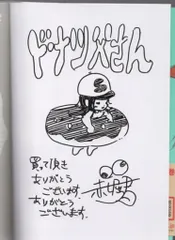 ドーナツ父さん
S
買って頂き
ありがとう
ございます。
ありがとう
ございます。